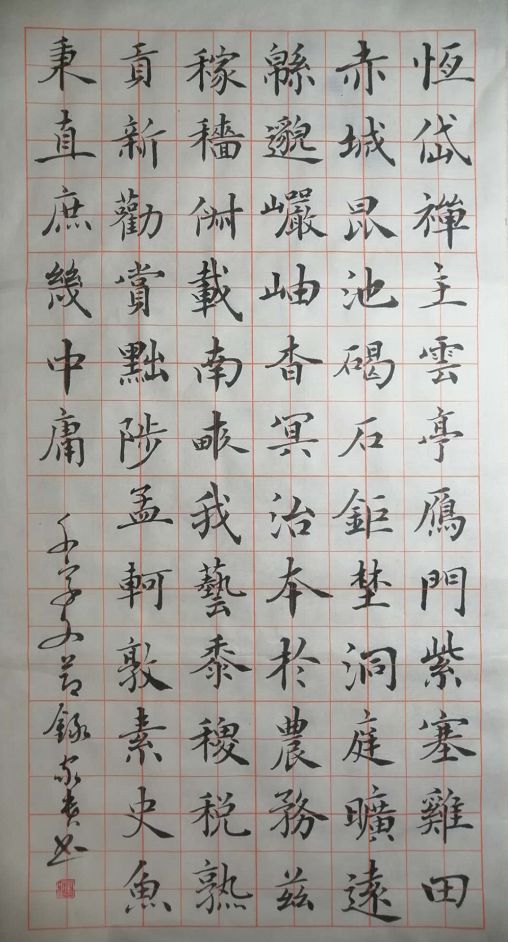 恆岱禪主雲亭鴈門紫塞雞田
赤城昆池碣石鉅埜洞庭曠遠
緜邈巗岫杳冥治本於農務茲
稼穡俶載南畝我藝黍稷稅熟
貢新勸賞黜陟孟軻敦素史魚
秉直庶幾中庸
千字文節錄家貴書